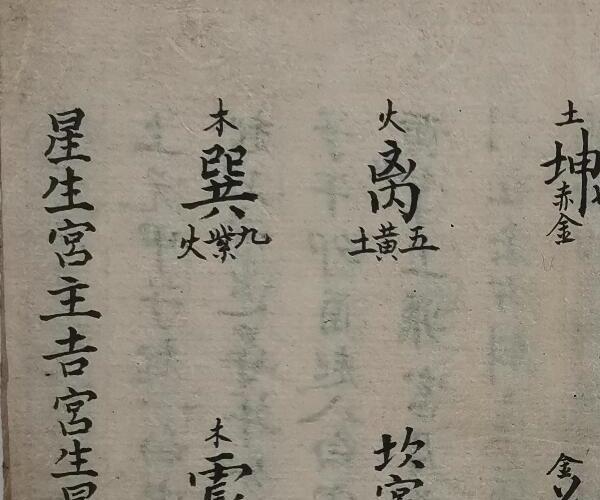 土
坤
赤金
火
离
五黃土
坎宮
木
巽
九紫火
木
震
星生宮主吉宮生星
金